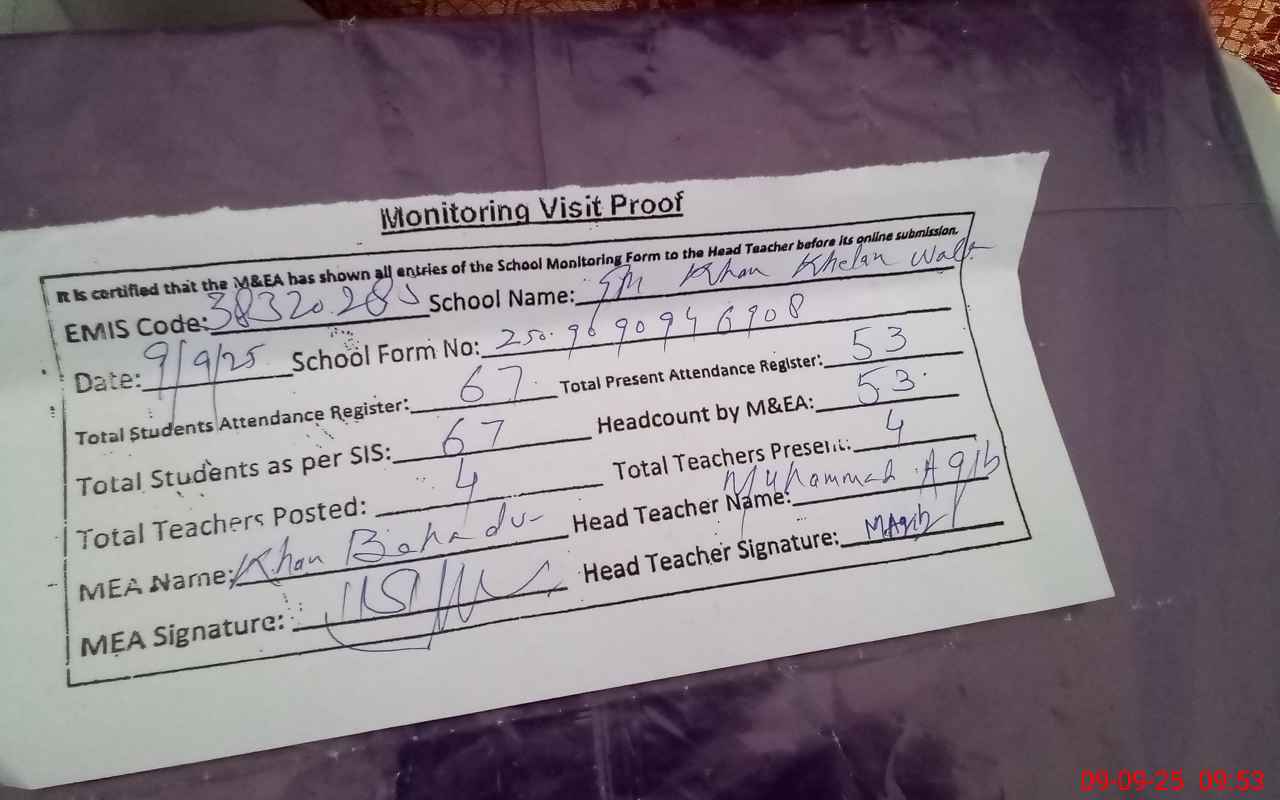 Monitoring Visit Proof
It is certified that the M&EA has shown all entries of the School Monitoring Form to the Head Teacher before its online submission.
EMIS Code: 3832028 School Name: Khan Khelan Wala
Date: 9/9/25 School Form No: 250.9690946908
Total Students Attendance Register: 67 Total Present Attendance Register: 53
Total Students as per SIS: 67 Headcount by M&EA: 53
Total Teachers Posted: 4 Total Teachers Present: 4
MEA Name: Khan Bahadur Head Teacher Name: Muhammad Aqib
MEA Signature: Head Teacher Signature: MAqib
09-09-25 09:53